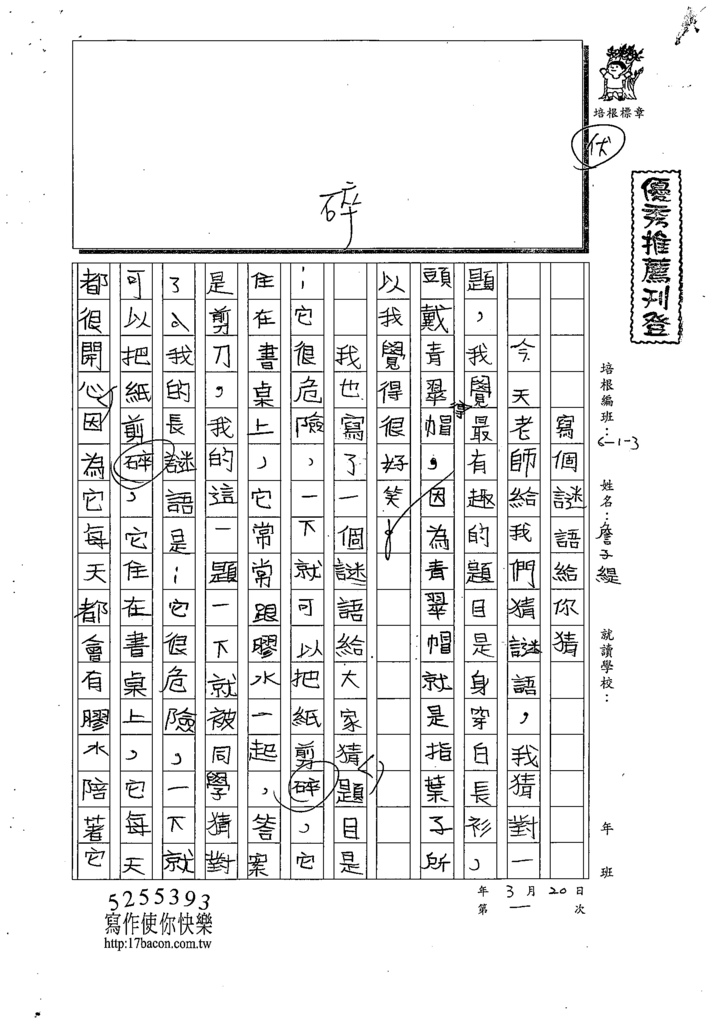 碎
培根標章
伏
優秀推薦刊登
培根編班：6-1-3
姓名：詹子緹
就讀學校：
年 班
寫個謎語給你猜
今天老師給我們猜謎語，我猜對一
題，我覺得最有趣的題目是身穿白長衫，
頭戴青翠帽，因為青翠帽就是指葉子所
以我覺得很好笑。
我也寫了一個謎語給大家猜，題目是
：它很危險，一下就可以把紙剪碎，它
住在書桌上，它常常跟膠水一起，答案
是剪刀，我的這一題一下就被同學猜對
了。我的長謎語是：它很危險，一下就
可以把紙剪碎，它住在書桌上，它每天
都很開心因為它每天都會有膠水陪著它
年3月20日
第一次
5255393
寫作使你快樂
http:17bacon.com.tw